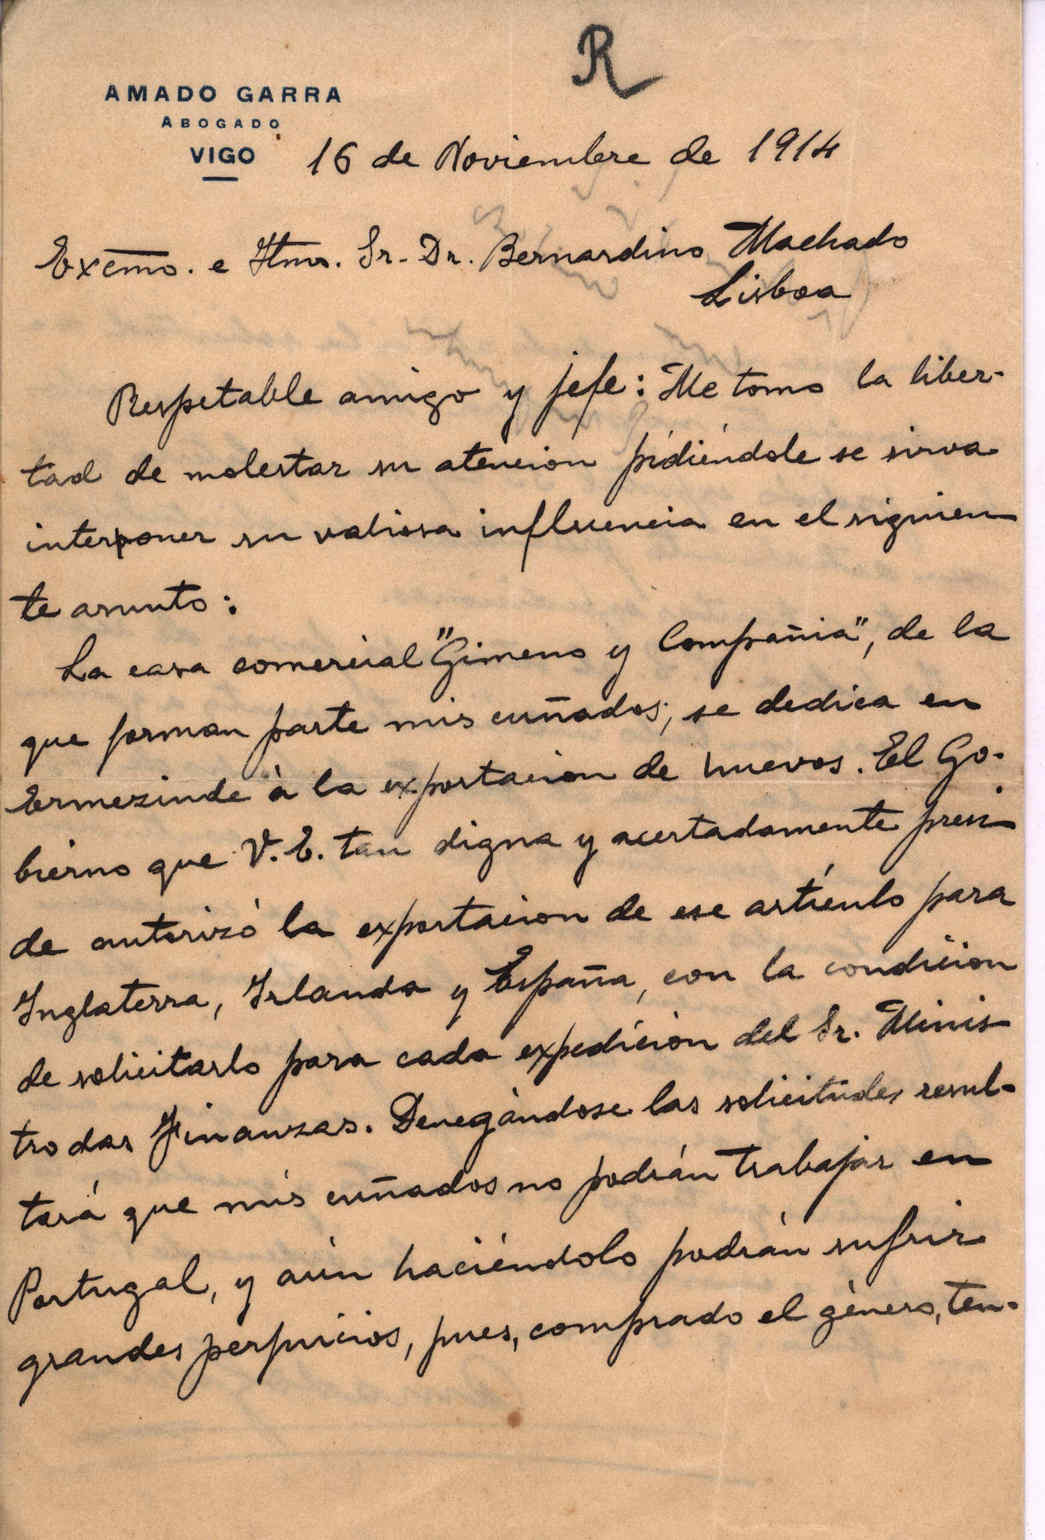 R
AMADO GARRA
ABOGADO
VIGO
16 de Noviembre de 1914
Excmo. e Iltmo. Sr. Dr. Bernardino Machado
Lisboa
Respetable amigo y jefe: Me tomo la liber-
tad de molestar su atencion pidiéndole se sirva
interponer su valiosa influencia en el siguien
te asunto:
La casa comercial "Gimeno y Compañia", de la
que forman parte mis cuñados, se dedica en
Ermezinde à la exportacion de huevos. El Go-
bierno que V. E. tan digna y acertadamente presi
de autorizó la exportacion de ese artículo para
Inglaterra, Irlanda y España, con la condicion
de solicitarlo para cada expedicion del Sr. Minis
tro das Finanzas. Denegándose las solicitudes resul-
tará que mis cuñados no podrán trabajar en
Portugal, y aún haciéndolo podrán sufrir
grandes perjuicios, pues, comprado el género, ten-